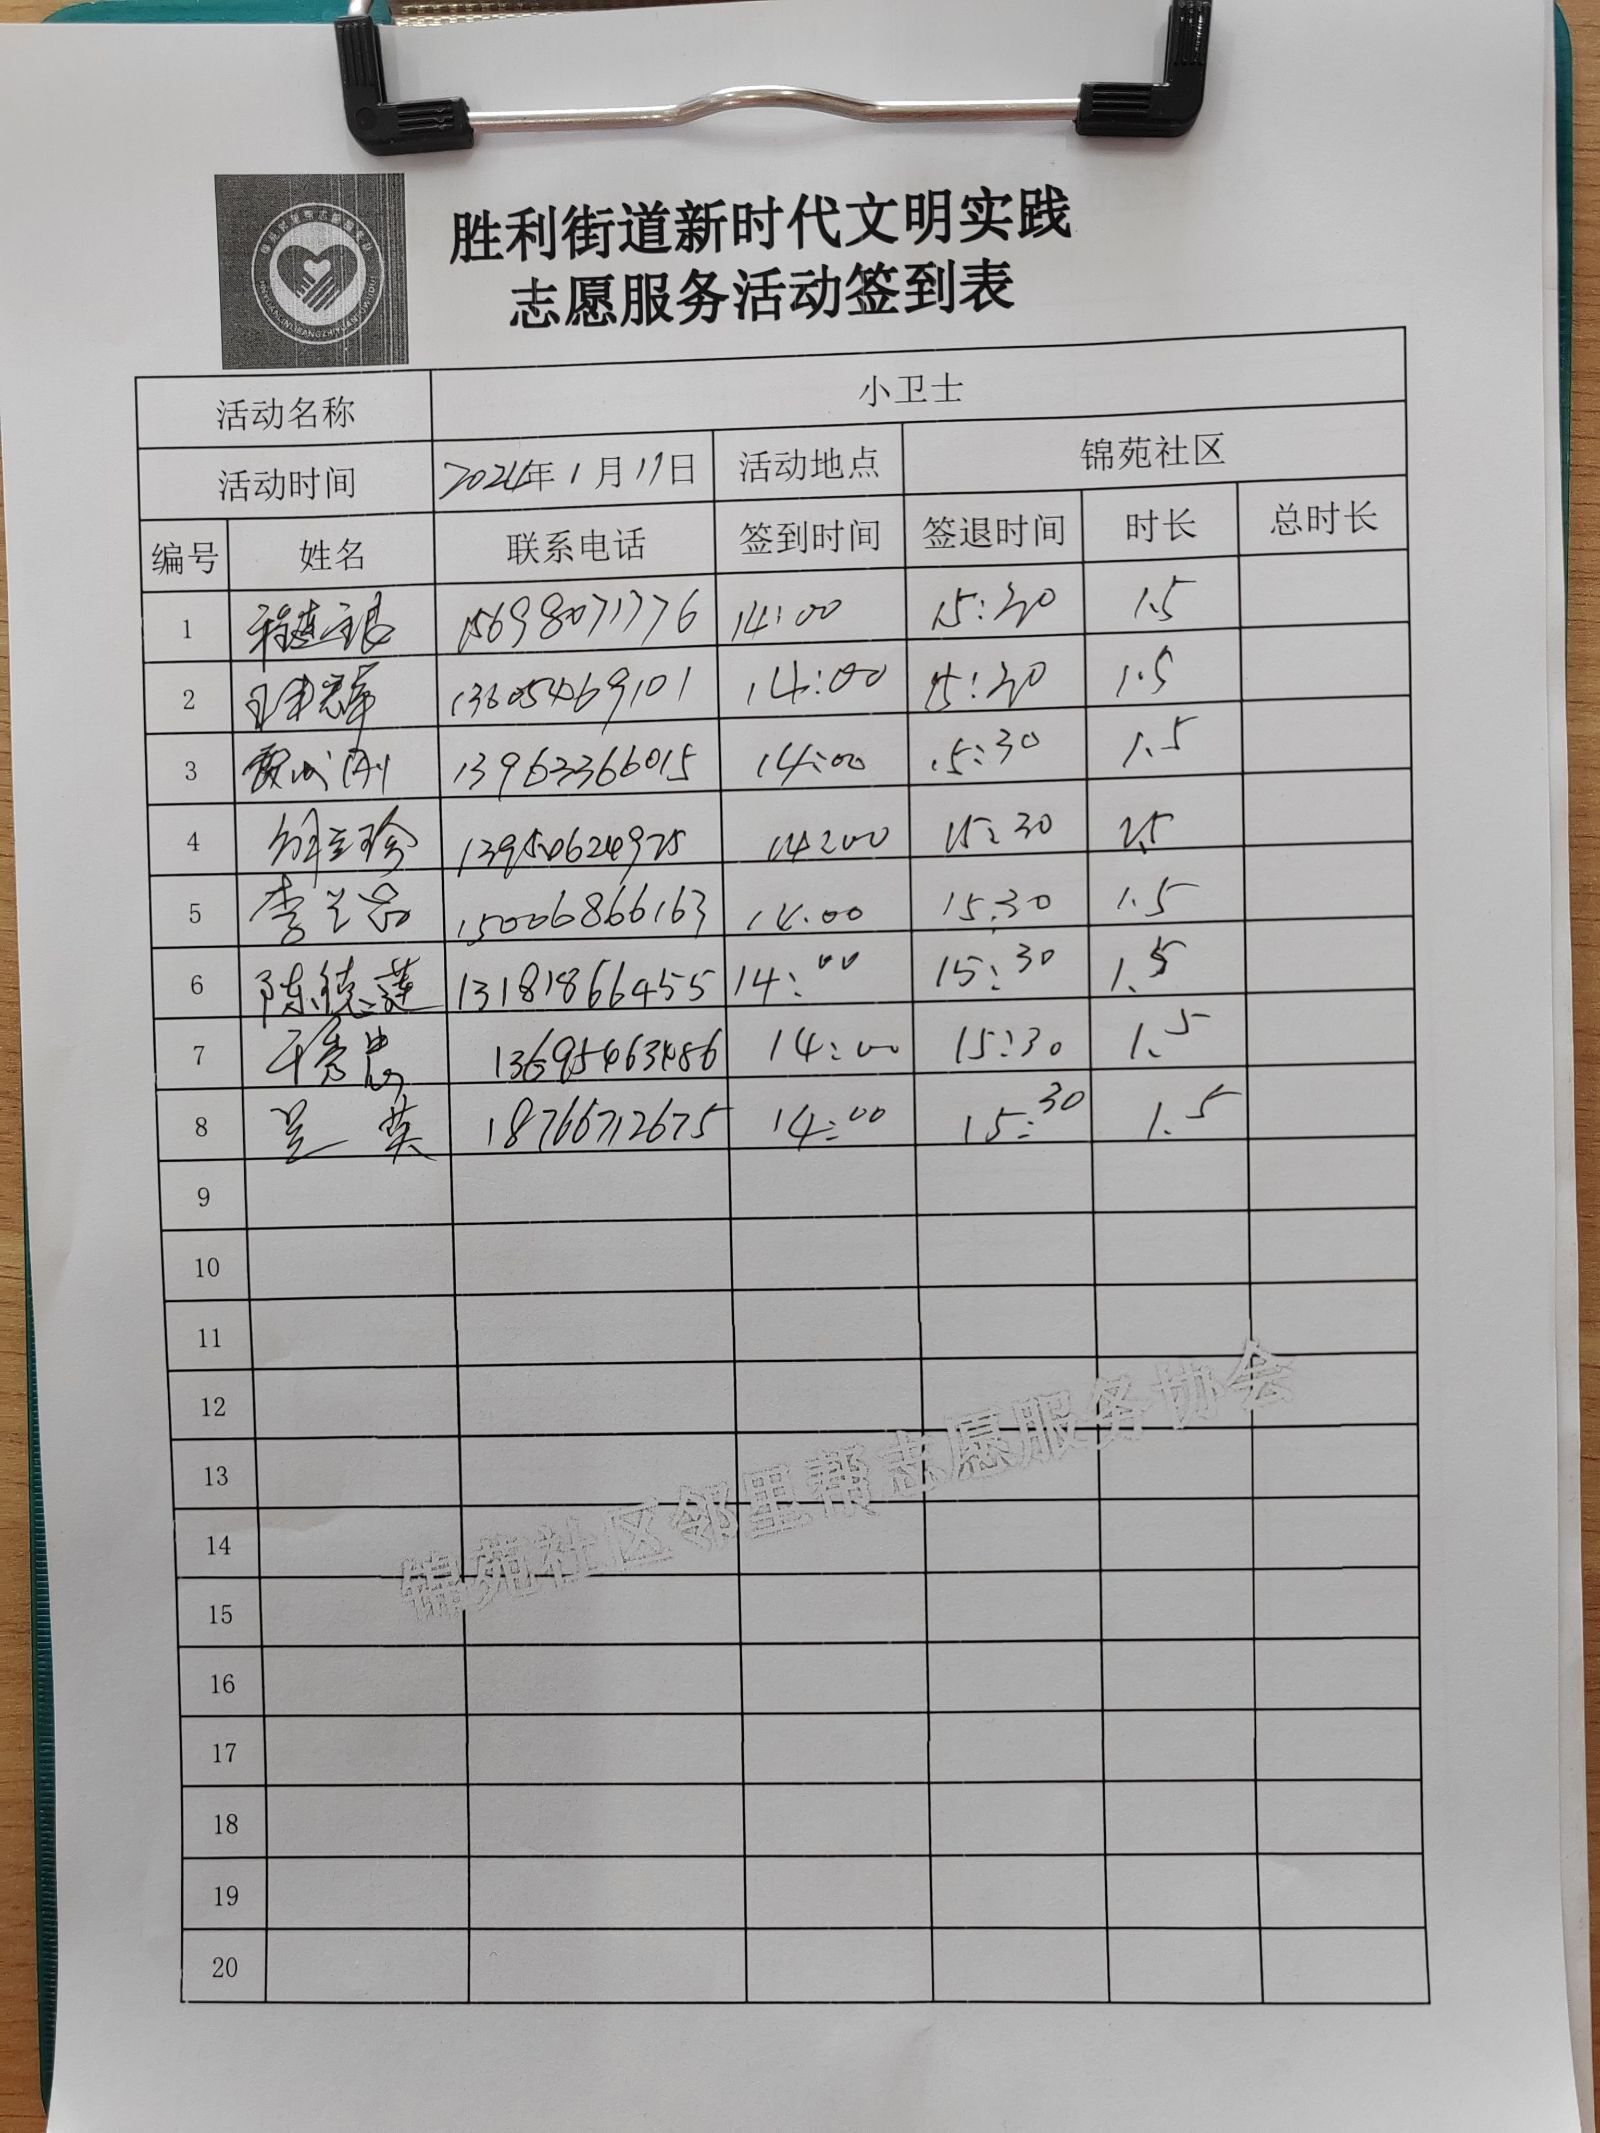 胜利街道新时代文明实践
志愿服务活动签到表
活动名称 小卫士
活动时间 2024年1月17日 活动地点 锦苑社区
编号 姓名 联系电话 签到时间 签退时间 时长 总时长
1 15698071776 14:00 15:30 1.5
2 13605469101 14:00 15:30 1.5
3 13963366015 14:00 15:30 1.5
4 14:00 15:30 1.5
5 李兰品 15006866163 14:00 15:30 1.5
6 陈德莲 13181866455 14:00 15:30 1.5
7 14:00 15:30 1.5
8 吴英 18766712675 14:00 15:30 1.5
9
10
11
12
13
14
15
16
17
18
19
20
锦苑社区邻里帮志愿服务协会